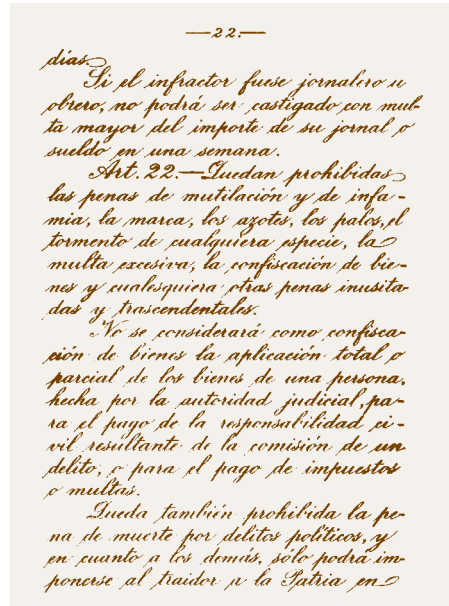 —22.—
días.
Si el infractor fuese jornalero u
obrero, no podrá ser castigado con mul-
ta mayor del importe de su jornal o
sueldo en una semana.
Art. 22.—Quedan prohibidas
las penas de mutilación y de infa-
mia, la marca, los azotes, los palos, el
tormento de cualquiera especie, la
multa excesiva, la confiscación de bie-
nes y cualesquiera otras penas inusita-
das y trascendentales.
No se considerará como confisca-
ción de bienes la aplicación total o
parcial de los bienes de una persona,
hecha por la autoridad judicial, pa-
ra el pago de la responsabilidad ci-
vil resultante de la comisión de un
delito, o para el pago de impuestos
o multas.
Queda también prohibida la pe-
na de muerte por delitos políticos, y
en cuanto a los demás, sólo podrá im-
ponerse al traidor a la Patria en